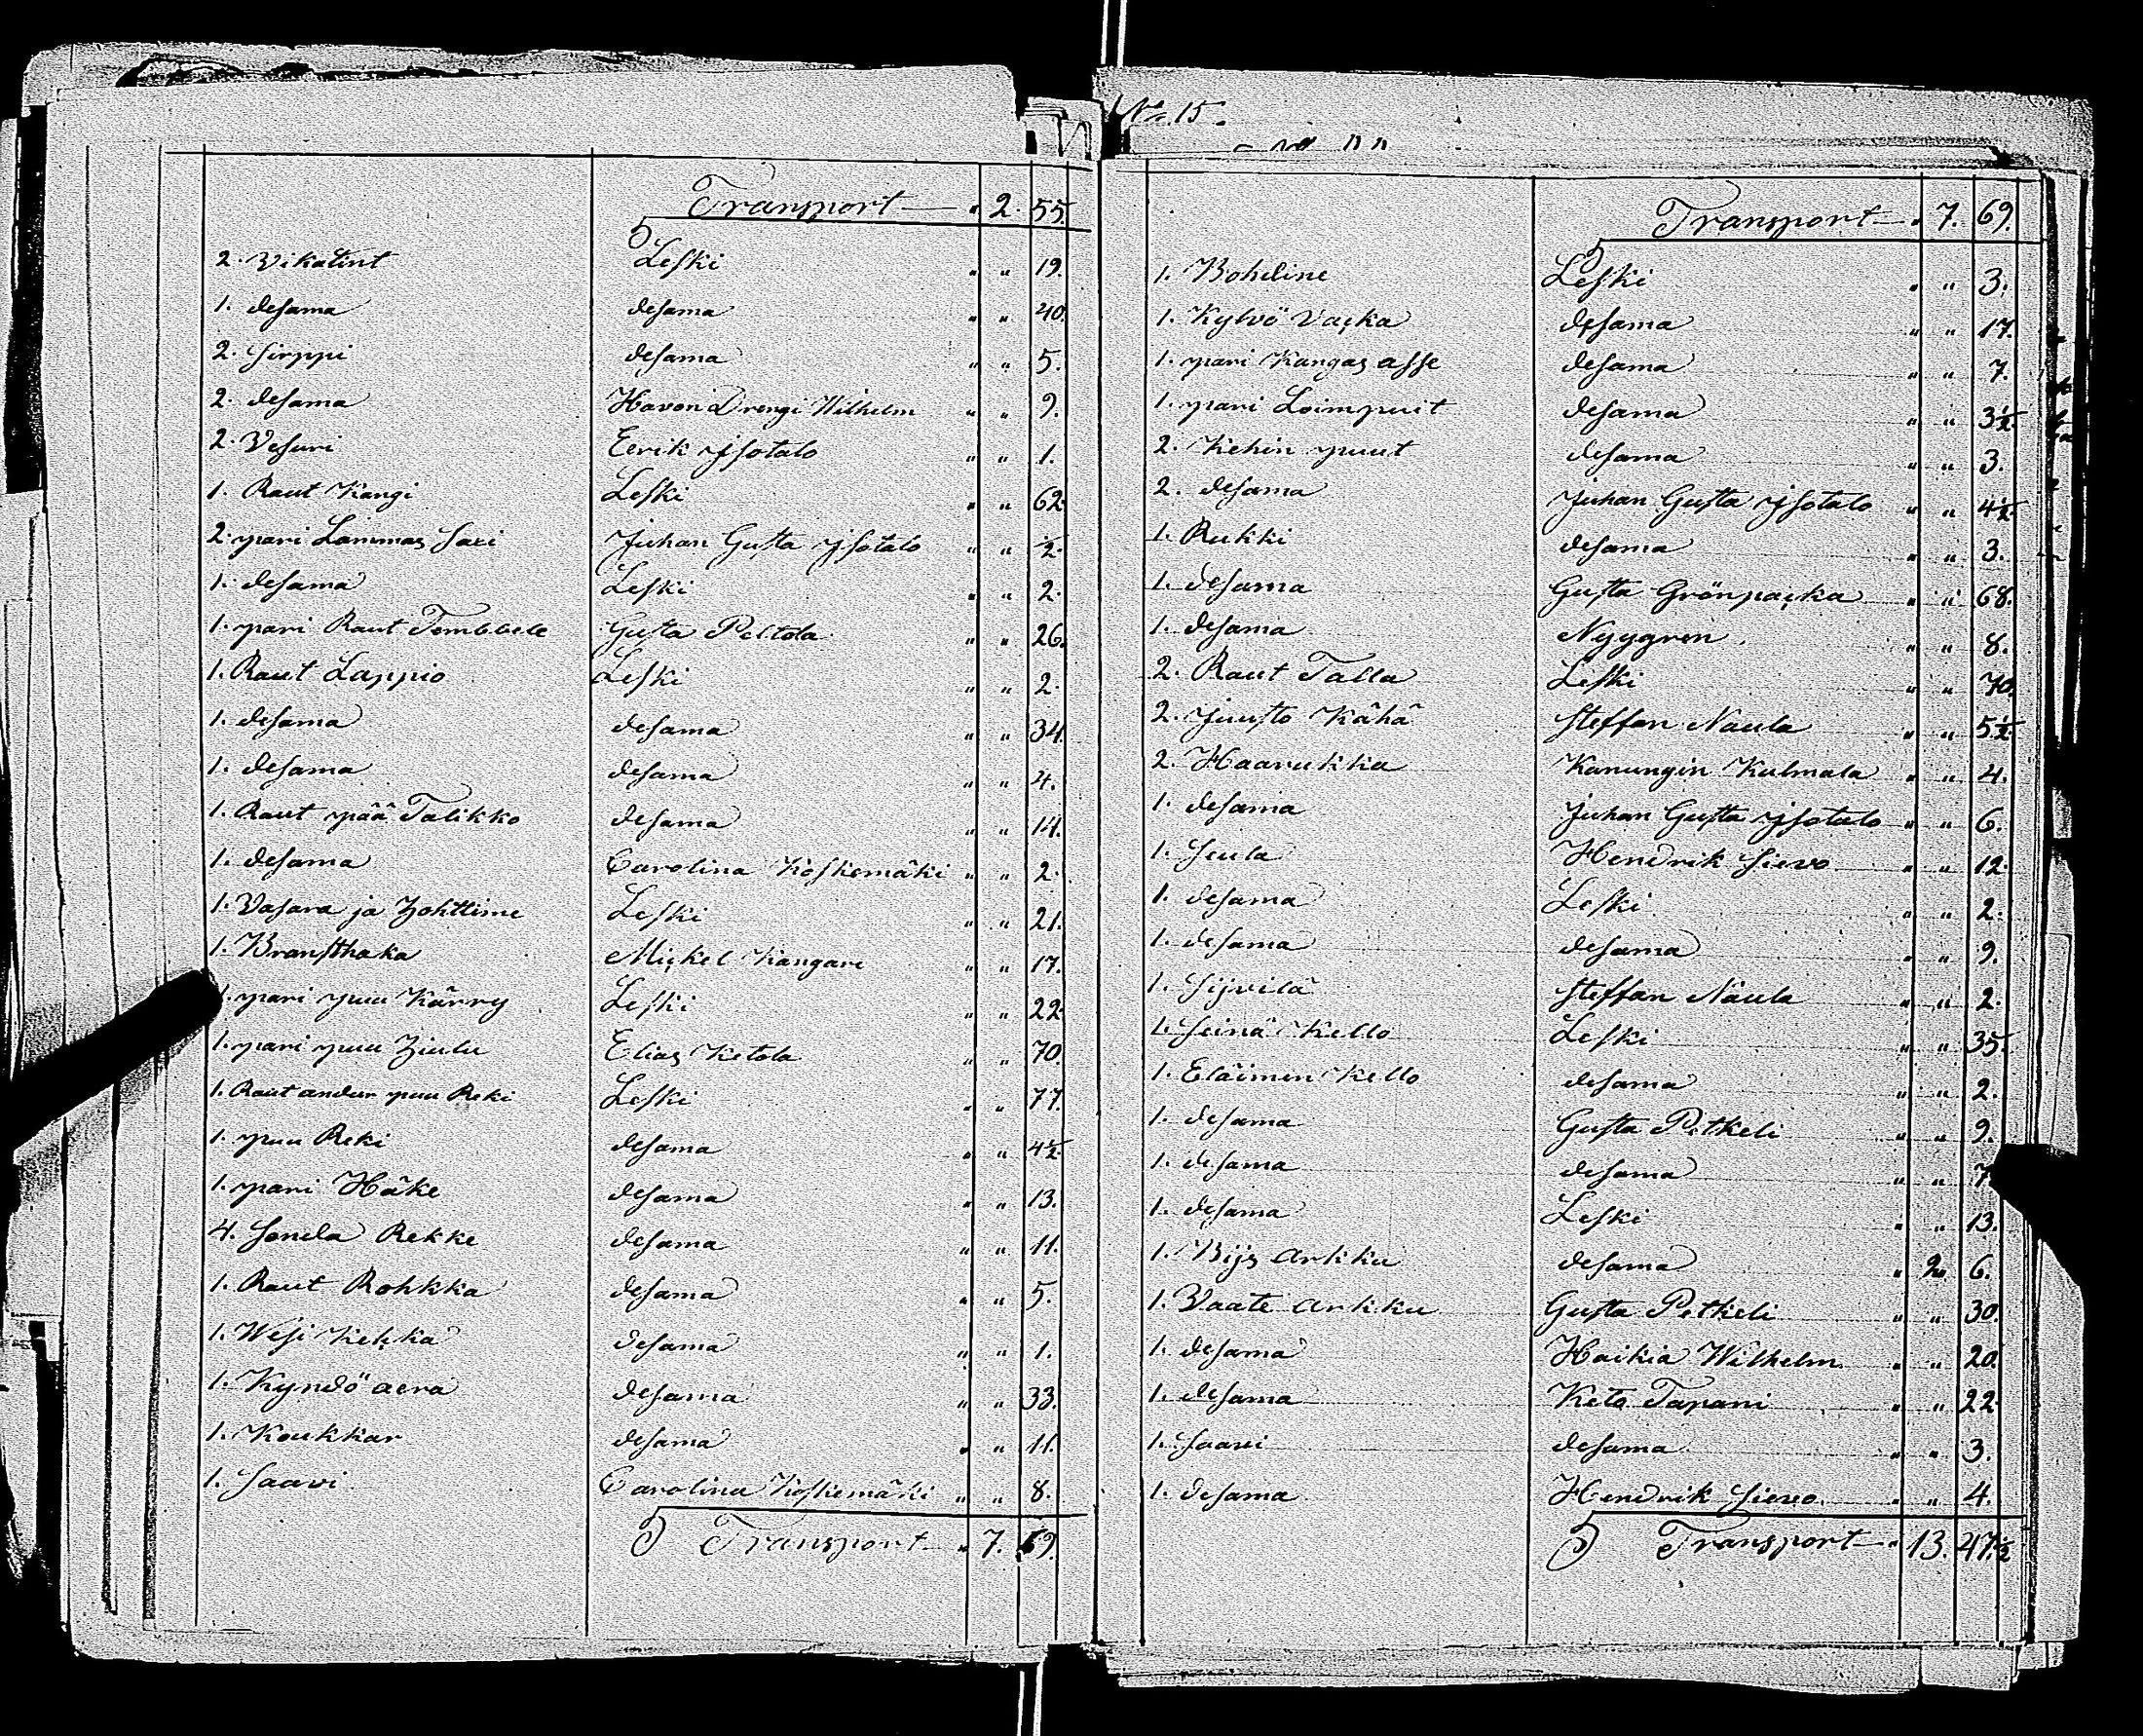 Transport — " 2. 55.
2. Vikatint Leski " " 19.
1. desama desama " " 40.
2. Sirppi desama " " 5.
2. desama Havon Drengi Wilhelm " " 9.
2. Vesuri Eerik Isotalo " " 1.
1. Raut Kangi Leski " " 62.
2. pari Lammas Saxi Juhan Gusta Isotalo " " ½.
1. desama Leski " " 2.
1. pari Raut Tembbele Gusta Peltola " " 26.
1. Raut Lappio Leski " " 2.
1. desama desama " " 34.
1. desama desama " " 4.
1. Raut pää Talikko desama " " 14.
1. desama Carolina Koskemäki " " 2.
1. Vasara ja Hohttime Leski " " 21.
1. Bransthaka Mickel Kangare " " 17.
1. pari puu Kärry Leski " " 22.
1. pari puu Hiulu Elias Ketola " " 70.
1. Raut andur puu Reki Leski " " 77.
1. puu Reki desama " " 4½.
1. pari Häke desama " " 13.
4. Sonda Rekke desama " " 11.
1. Raut Rohkka desama " " 5.
1. Wesi Kelkka desama " " 1.
1. Kyndö aera desama " " 33.
1. Koukkar desama " " 11.
1. Saavi Carolina Koskemäki " " 8.
Transport — " 7. 69.
No. 15.
Transport — " 7. 69.
1. Boheline Leski " " 3.
1. Kylvö Vacka desama " " 17.
1. pari Kangas asse desama " " 7.
1. pari Loimpuit desama " " 3½.
2. Kehin puut desama " " 3.
2. desama Juhan Gusta Isotalo " " 4½.
1. Rukki desama " " 3.
1. desama Gusta Grönpacka " " 68.
1. desama Nyygren " " 8.
2. Raut Talla Leski " " 70.
2. Juusto Kähä Steffan Naula " " 5½.
2. Haarukka Kanungin Kulmala " " 4.
1. desama Juhan Gusta Isotalo " " 6.
1. Seula Hendrik Sievo " " 12.
1. desama Leski " " 2.
1. desama desama " " 9.
1. Sijvilä Steffan Naula " " 2.
1. Seinä Kello Leski " " 35.
1. Eläimen Kello desama " " 2.
1. desama Gusta Petkeli " " 9.
1. desama desama " " 7
1. desama Leski " " 13.
1. Bijs arkku desama " 2. 6.
1. Vaate arkku Gusta Petkeli " " 30.
1. desama Haikia Wilhelm " " 20.
1. desama Keto Tapani " " 22.
1. Saavi desama " " 3.
1. desama Hendrik Sievo " " 4.
Transport — " 13. 47½